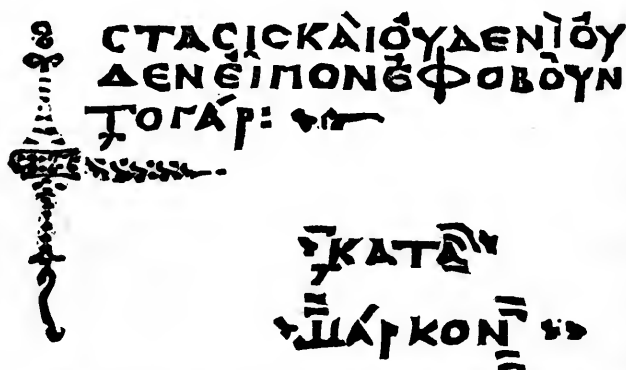 ϹΤΑϹΙϹΚΑὶΟΥΔΕΝῚΟΥ
ΔΕΝΕἶΠΟΝἘΦΟΒΟΥΝ
ΤΟΓΆΡ:
ΚΑΤᾺ
ΜΆΡΚΟΝ